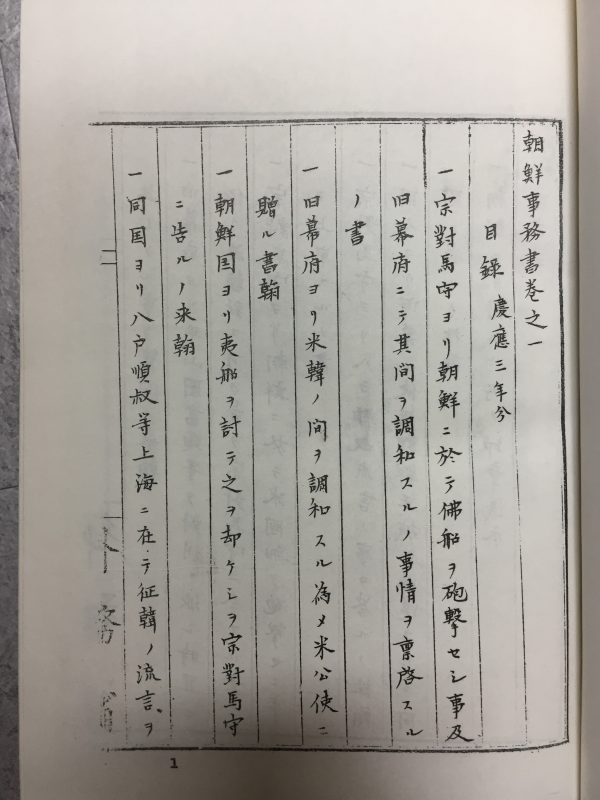 朝鮮事務書卷之一
目録 慶應三年分
一宗對馬守ヨリ朝鮮ニ於テ佛船ヲ砲擊セシ事及
旧幕府ニテ其间ヲ調和スルノ事情ヲ禀啓スル
ノ書
一旧幕府ヨリ米韓ノ间ヲ調和スル為メ米公使ニ
贈ル書翰
一朝鮮国ヨリ夷船ヲ討テ之ヲ却ケシヲ宗對馬守
ニ告ルノ来翰
一同国ヨリ八戶順叔等上海ニ在テ征韓ノ流言ヲ
1